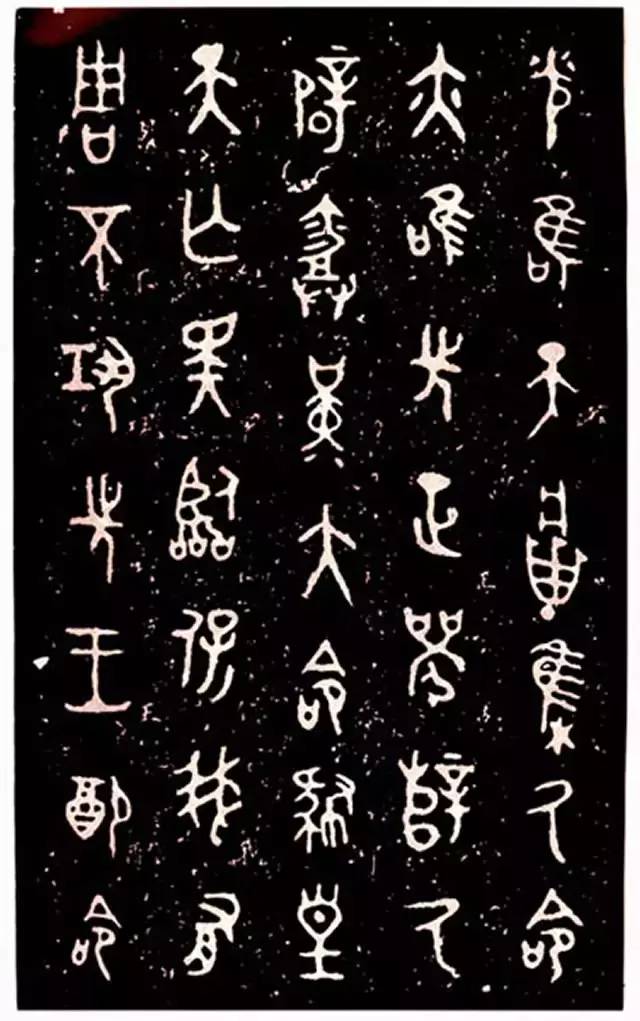 光唯天𤖕集氒命
亦唯先正襄辥氒
辟堇大命肆皇
天亡斁臨保我有
周不巩先王配命